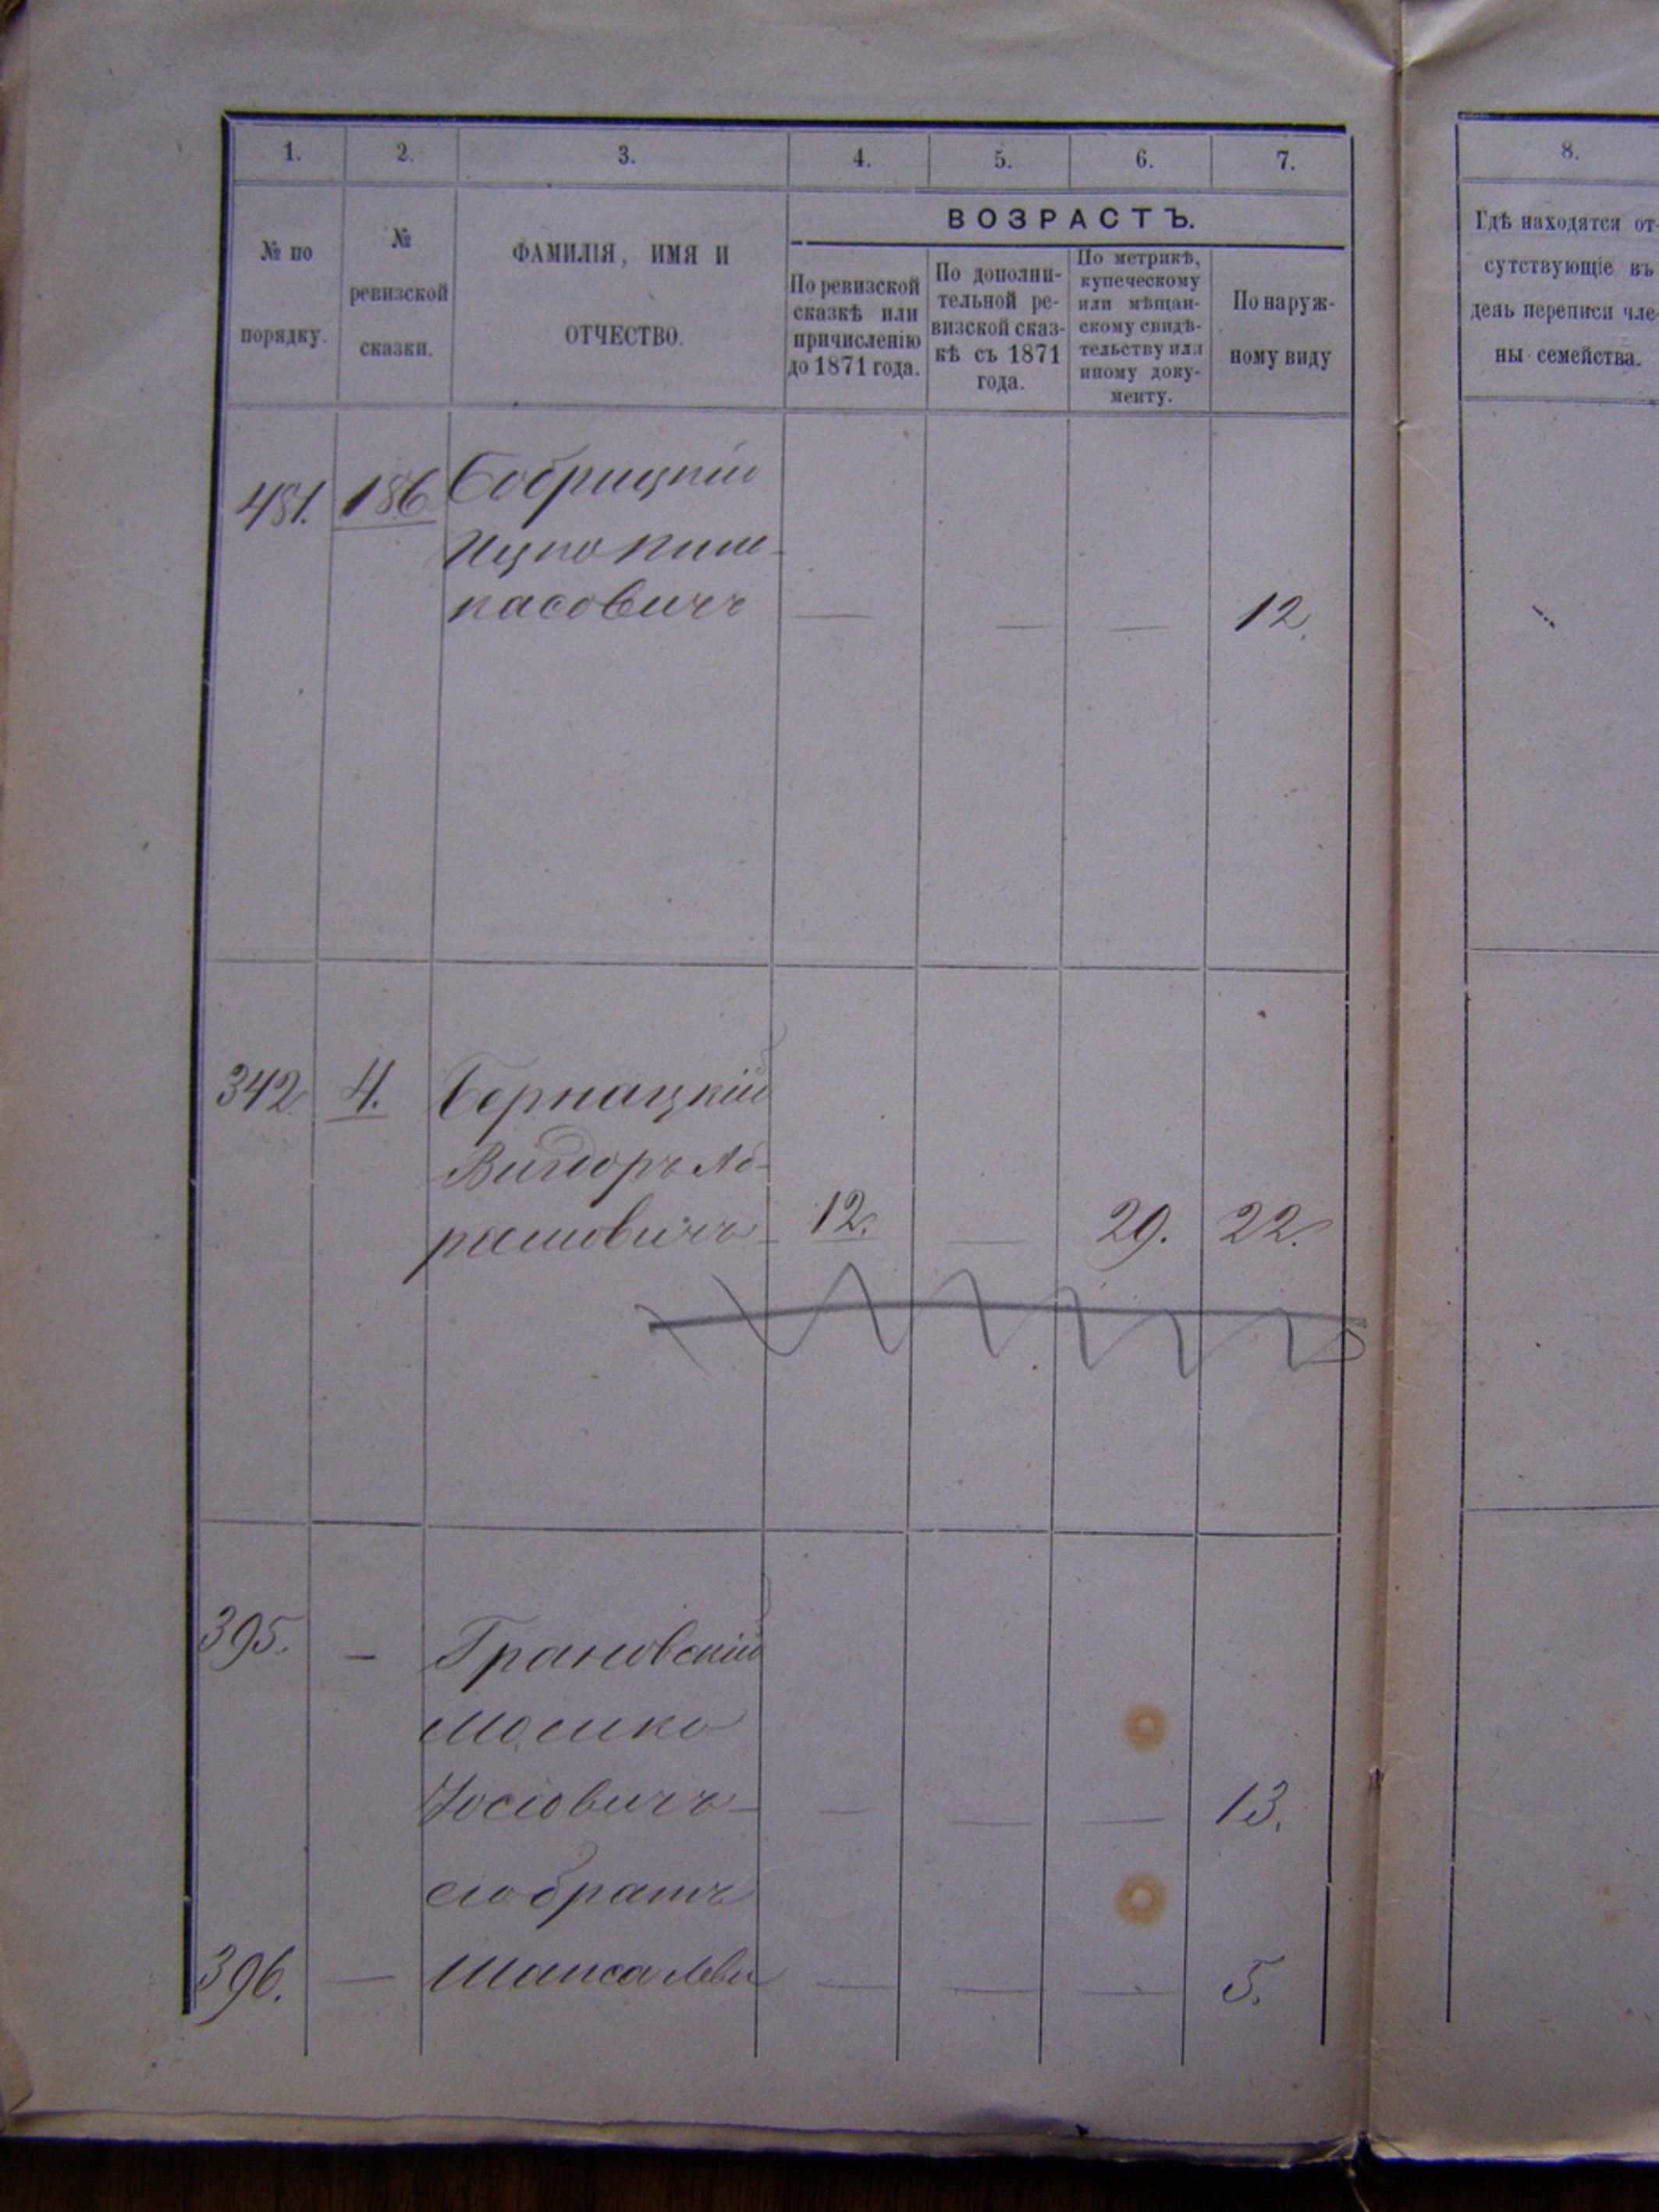 1. 2. 3. 4. 5. 6. 7. 8.
№ по
порядку.
№
ревизской
сказки.
ФАМИЛІЯ, ИМЯ И
ОТЧЕСТВО.
ВОЗРАСТЪ.
По ревизской
сказкѣ или
причисленію
до 1871 года.
По дополни-
тельной ре-
визской сказ-
кѣ съ 1871
года.
По метрикѣ,
купеческому
или мѣщан-
скому свидѣ-
тельству или
иному доку-
менту.
По наруж-
ному виду
Гдѣ находятся от-
сутствующіе въ
день переписи чле-
ны семейства.
481. 186 Бобрицкій
Ицко Пин-
касовичъ — — — 12.
342 4. Бернацкій
Вигдоръ Аб-
рамовичъ 12. — 29. 22.
395. — Грановскій
Мошко
Іосіовичъ — — — 13.
его братъ
396. — Шапса Леви — — — 5.